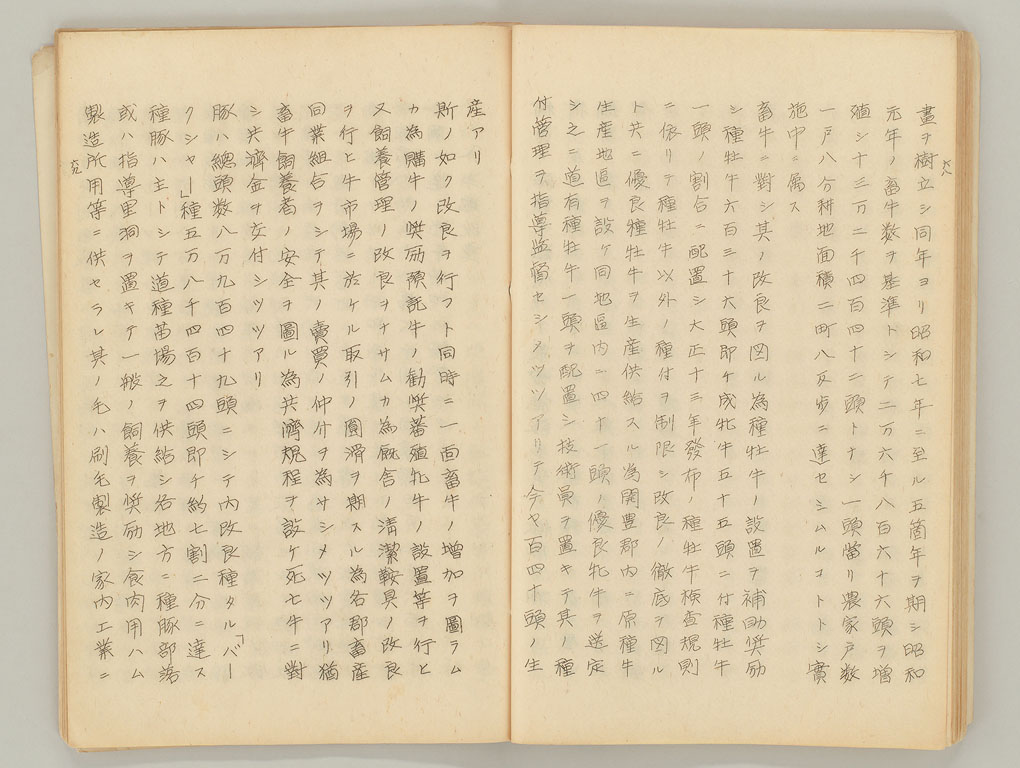 六八
畫ヲ樹立シ同年ヨリ昭和七年ニ至ル五箇年ヲ期シ昭和
元年ノ畜牛数ヲ基準トシテ二万六千八百六十六頭ヲ増
殖シ十三万二千四百四十二頭トナシ一頭當リ農家戸数
一戸八分耕地面積二町八反歩ニ達セシムルコトトシ實
施中ニ属ス
畜牛ニ對シ其ノ改良ヲ図ル為種牡牛ノ設置ヲ補助奨励
シ種牡牛六百三十六頭即チ成牝牛五十五頭ニ付種牡牛
一頭ノ割合ニ配置シ大正十三年發布ノ種牡牛検査規則
ニ依リテ種牡牛以外ノ種付ヲ制限シ改良ノ徹底ヲ図ル
ト共ニ優良種牡牛ヲ生産供給スル為開豊郡内ニ原種牛
生産地區ヲ設ケ同地區内ニ四十一頭ノ優良牝牛ヲ選定
シ之ニ道有種牡牛一頭ヲ配置シ技術員ヲ置キテ其ノ種
付管理ヲ指導監督セシメツツアリテ今ヤ百四十頭ノ生
六九
産アリ
斯ノ如ク改良ヲ行フト同時ニ一面畜牛ノ増加ヲ圖ラム
カ為購牛ノ奨励預託牛ノ勧奨蕃殖牝牛ノ設置等ヲ行ヒ
又飼養管理ノ改良ヲナサムカ為厩舎ノ清潔鞍具ノ改良
ヲ行ヒ牛市場ニ於ケル取引ノ圓滑ヲ期スル為各郡畜産
同業組合ヲシテ其ノ賣買ノ仲付ヲ為サシメツツアリ猶
畜牛飼養者ノ安全ヲ圖ル為共濟規程ヲ設ケ死亡牛ニ對
シ共濟金ヲ交付シツツアリ
豚ハ總頭数八万九百四十九頭ニシテ内改良種タル「バー
クシャー」種五万八千四百十四頭即チ約七割二分ニ達ス
種豚ハ主トシテ道種苗場之ヲ供給シ各地方ニ種豚部落
或ハ指導里洞ヲ置キテ一般ノ飼養ヲ奨励シ食肉用ハム
製造所用等ニ供セラレ其ノ毛ハ刷毛製造ノ家内工業ニ